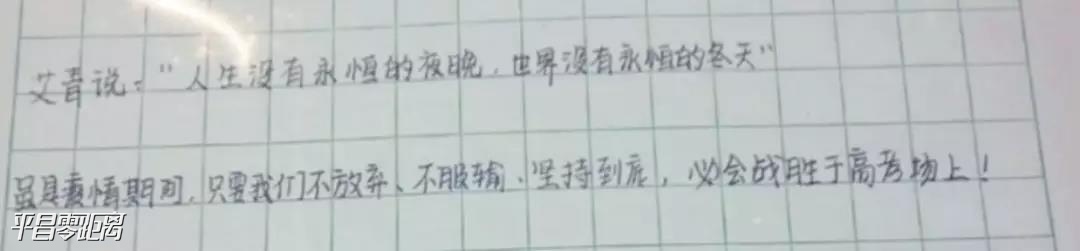 艾青说："人生没有永恒的夜晚，世界没有永恒的冬天"
虽是疫情期间，只要我们不放弃、不服输、坚持到底，必会战胜于高考场上！
平昌零距离